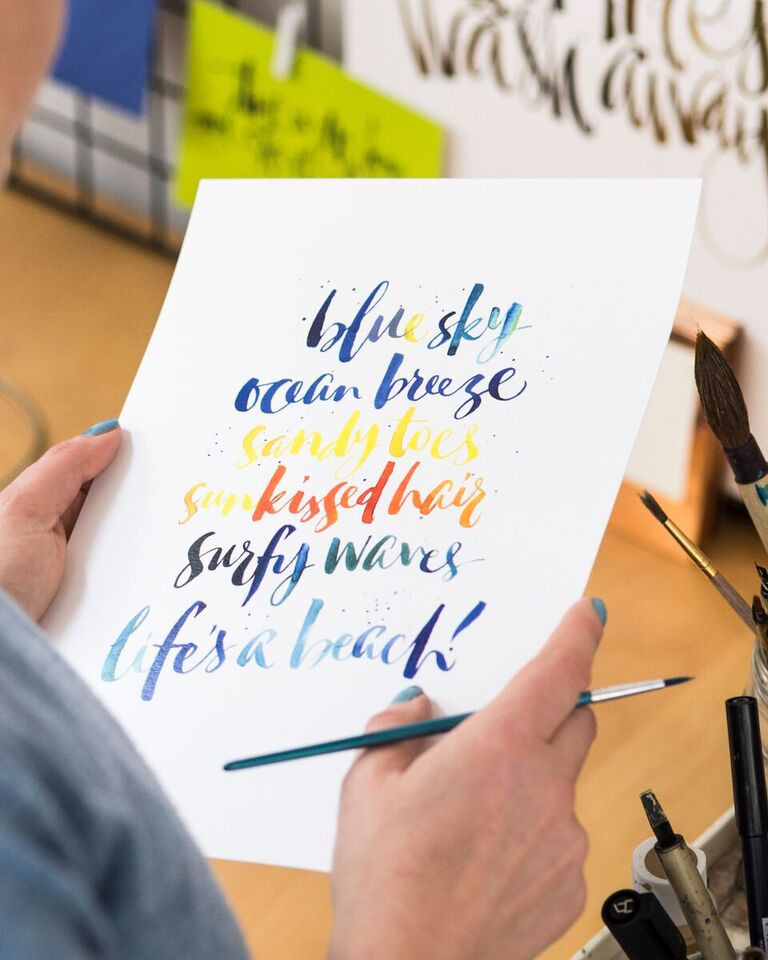 wash away
blue sky
ocean breeze
sandy toes
sunkissed hair
surfy waves
life's a beach!